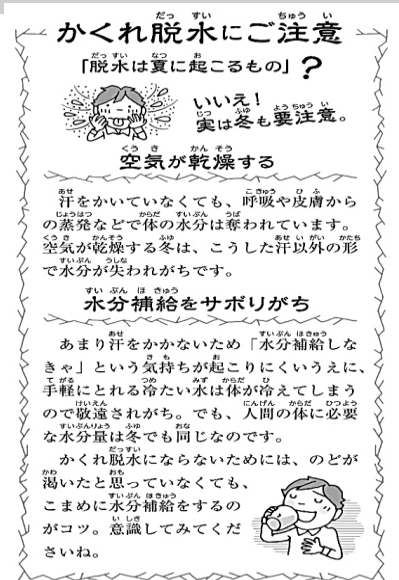 かくれ脱水にご注意
「脱水は夏に起こるもの」?
いいえ!
実は冬も要注意。
空気が乾燥する
汗をかいていなくても、呼吸や皮膚から
の蒸発などで体の水分は奪われています。
空気が乾燥する冬は、こうした汗以外の形
で水分が失われがちです。
水分補給をサボりがち
あまり汗をかかないため「水分補給しな
きゃ」という気持ちが起こりにくいうえに、
手軽にとれる冷たい水は体が冷えてしまう
ので敬遠されがち。でも、人間の体に必要
な水分量は冬でも同じなのです。
かくれ脱水にならないためには、のどが
渇いたと思っていなくても、
こまめに水分補給をするの
がコツ。意識してみてくだ
さいね。